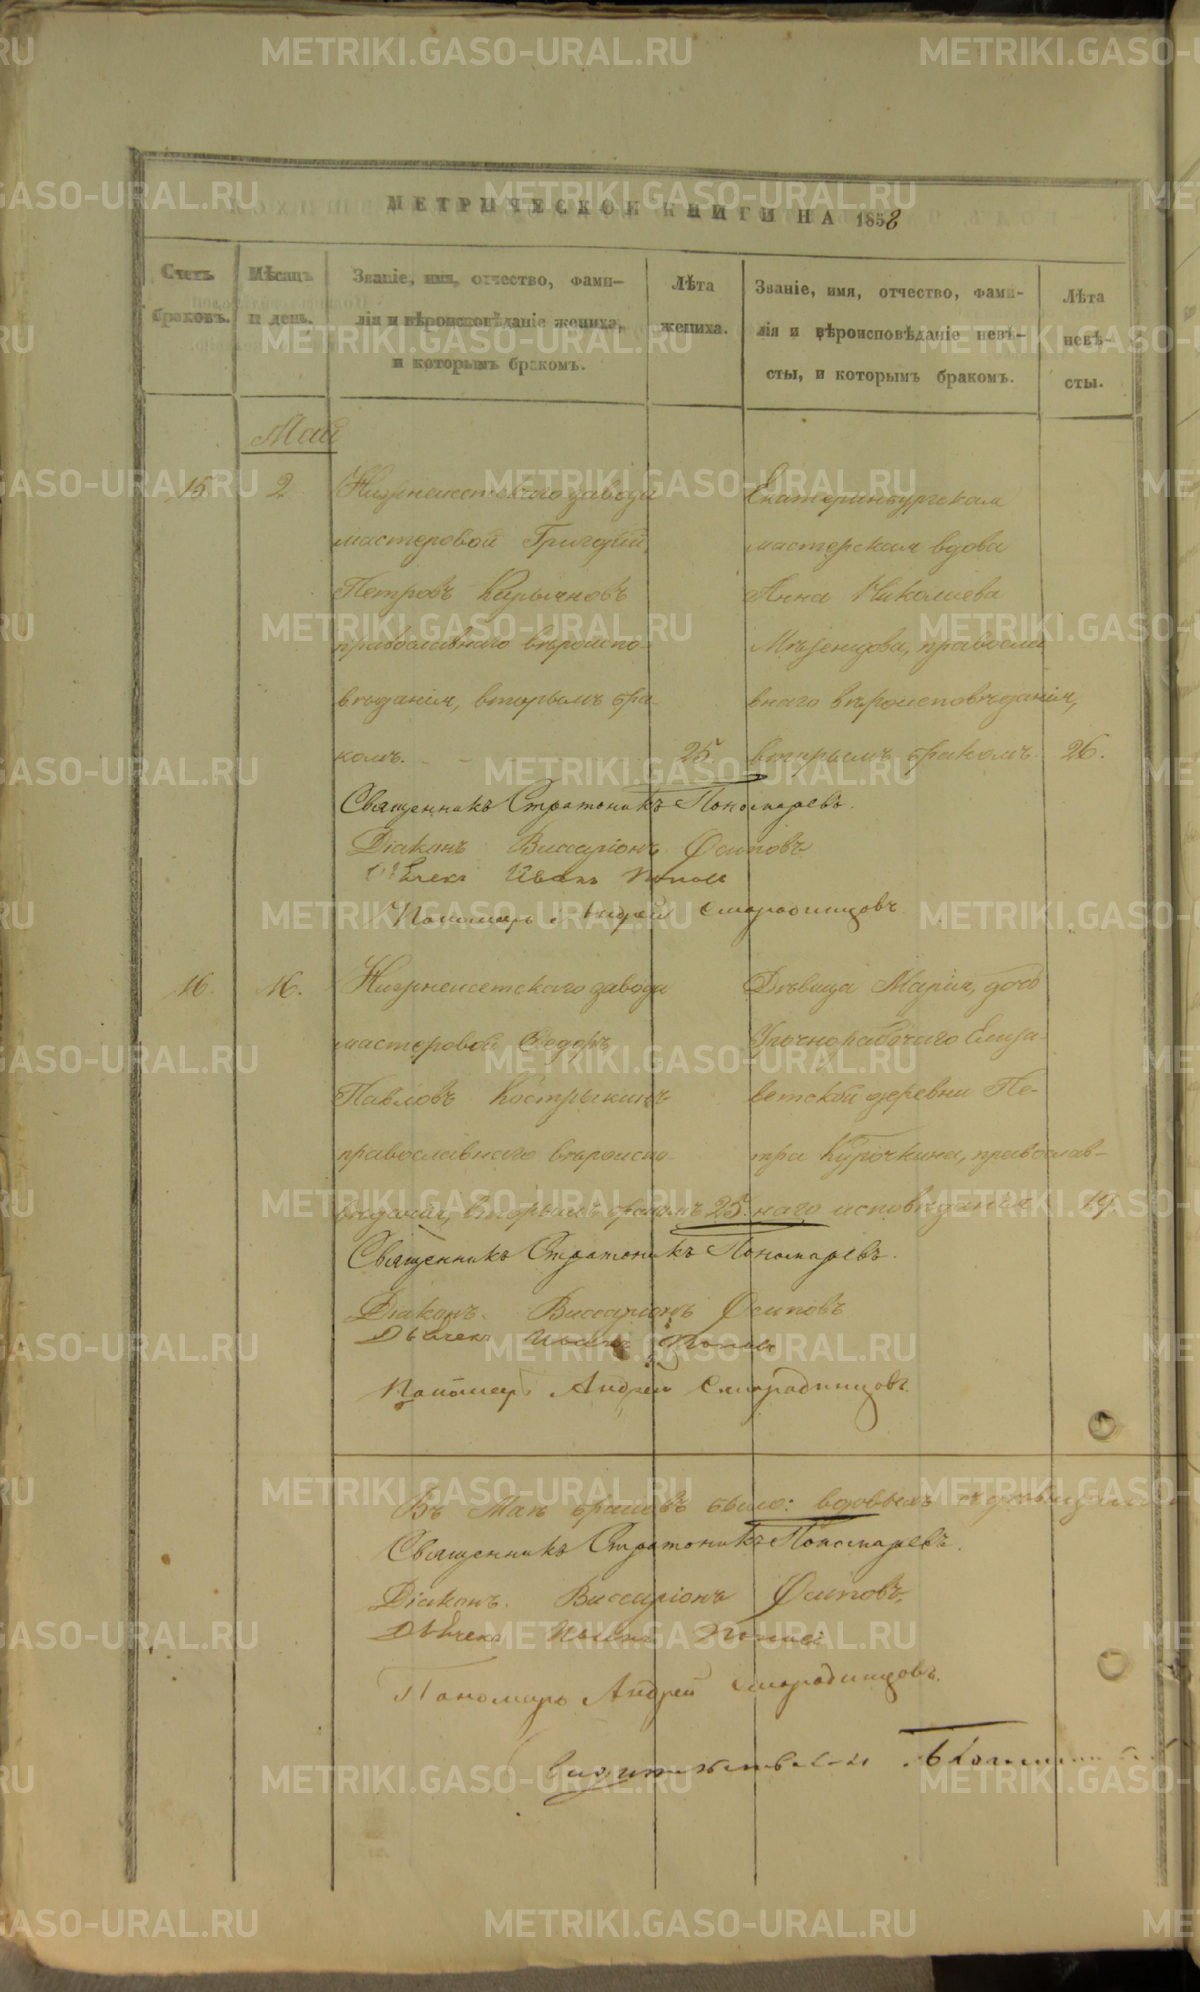 МЕТРИЧЕСКОЙ КНИГИ НА 1858
Счетъ браковъ.
Мѣсяцъ и день.
Званіе, имя, отчество, фами-
лія и вѣроисповѣданіе жениха,
и которымъ бракомъ.
Лѣта жениха.
Званіе, имя, отчество, фами-
лія и вѣроисповѣданіе невѣ-
сты, и которымъ бракомъ.
Лѣта невѣ-
сты.
Май
15. 2. Нижнеисетскаго завода
мастеровой Григорій
Петровъ
православнаго вѣроиспо-
вѣданія, вторымъ бра-
комъ. 25
Екатеринбургская
мастерская вдова
Анна Николаева
Мѣзенцова, православ
наго вѣроисповѣданія,
вторымъ бракомъ. 26.
Священникъ Стратоникъ Пономаревъ.
Діаконъ Виссаріонъ Осиповъ
Дьячекъ Иванъ Поповъ
Пономарь Андрей Смородинцовъ
16. 16. Нижнеисетскаго завода
мастеровой Ѳедоръ
Павловъ Костры­кинъ
православнаго вѣроиспо-
вѣданія, вторымъ бракомъ 25.
Дѣвица Марія, дочь
Урочнорабочаго Елиза-
ветской деревни Пе-
тра Курочкина, православ-
наго исповѣданія 19
Священникъ Стратоникъ Пономаревъ.
Діаконъ. Виссаріонъ Осиповъ
Дьячекъ Иванъ Поповъ
Пономарь Андрей Смородинцовъ
Въ Маѣ браковъ было: вдовыхъ съ
Священникъ Стратоникъ Пономаревъ.
Діаконъ. Виссаріонъ Осиповъ.
Дьячекъ Иванъ Поповъ
Пономарь Андрей Смородинцовъ.
METRIKI.GASO-URAL.RU